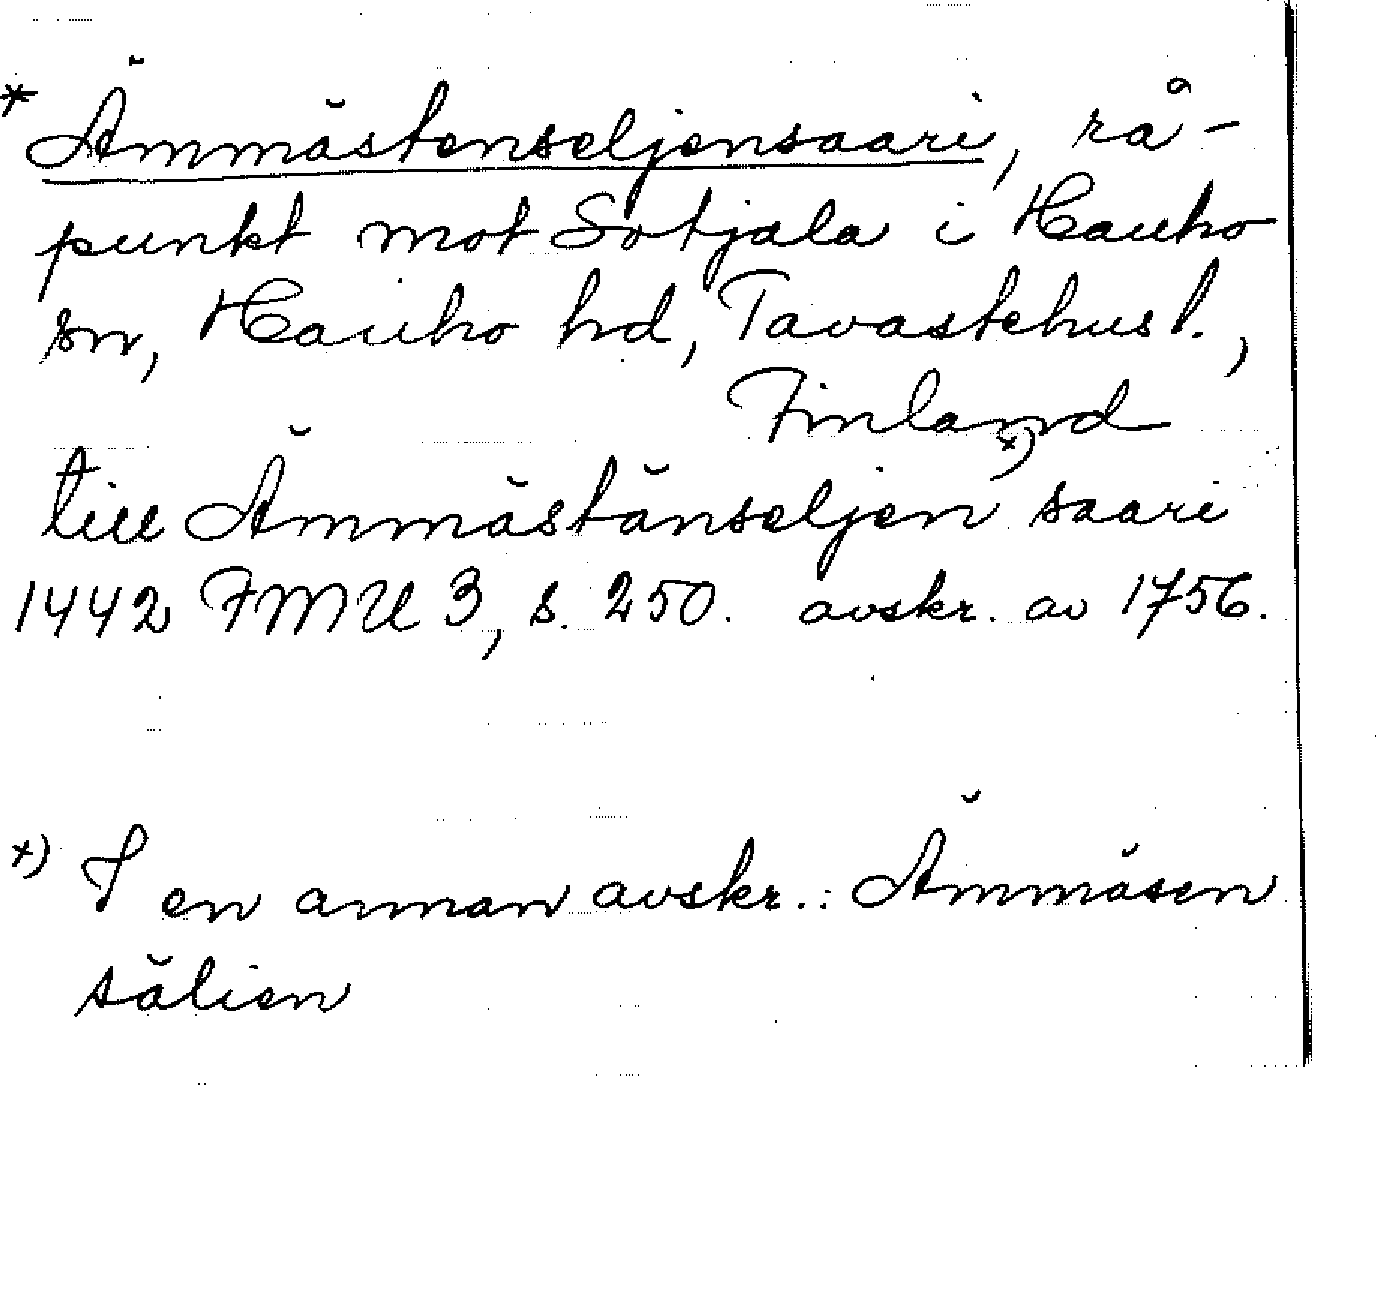 * Ämmästenseljensaari, rå-
punkt mot Sotjala i Hauho
sn, Hauho hd, Tavastehus l.,
Finland
till Ämmästänseljen x) saari
1442 FMU 3, s. 250. avskr. av 1756.
x) I en annan avskr.: Ämmäsen
sälien